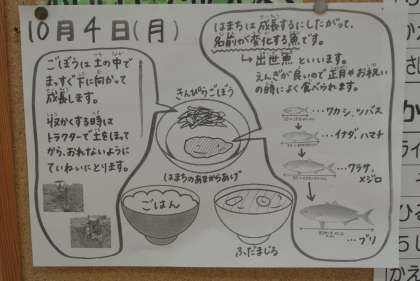 10月4日(月)
ごぼうは土の中で
まっすぐ下に向かって
成長します。
収かくする時は
トラクターで土をほって
から、おれないように
ていねいにとります。
はまちは成長するにしたがって、
名前が変化する魚です。
→出世魚といいます。
えんぎが良いので正月やお祝い
の時によく食べられます。
きんぴらごぼう
はまちのあまからあげ
ごはん
ふだまじる
…ワカシ、ツバス
…イナダ、ハマチ
…ワラサ、
メジロ
…ブリ